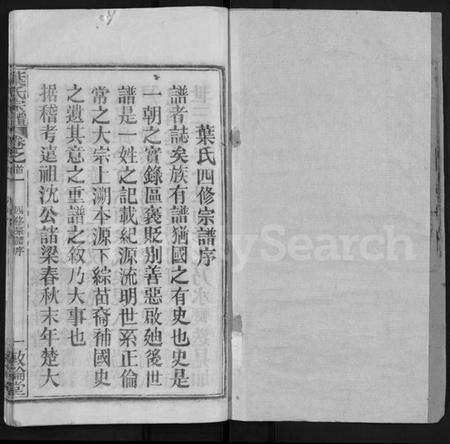 葉氏四修宗譜序
譜者誌矣族有譜猶國之有史也史是
一朝之實錄區褒貶別善惡啟廸後世
譜是一姓之記載紀源流明世系正倫
常之大宗上溯本源下綜苗裔補國史
之遺其意之重譜之敘乃大事也
据稽考遠祖沈公諸梁春秋末年楚大
葉氏宗譜 卷之首 四修宗譜序 一 敦倫堂
MySearch